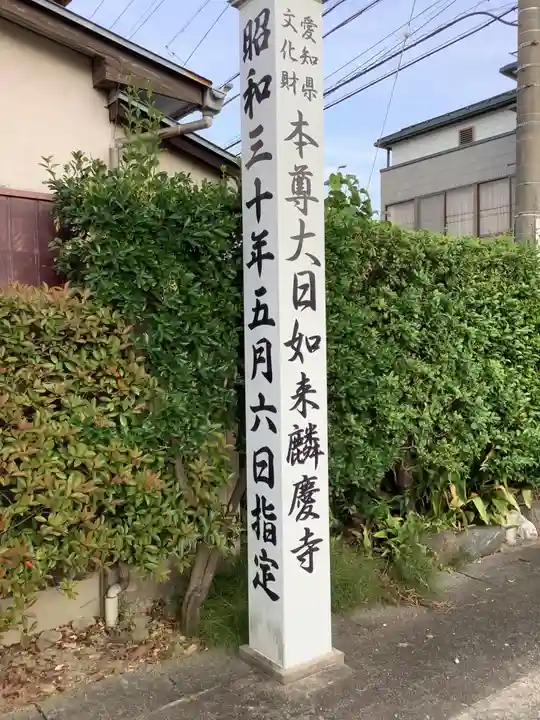 愛知県
文化財
本尊大日如来麟慶寺
昭和三十年五月六日指定